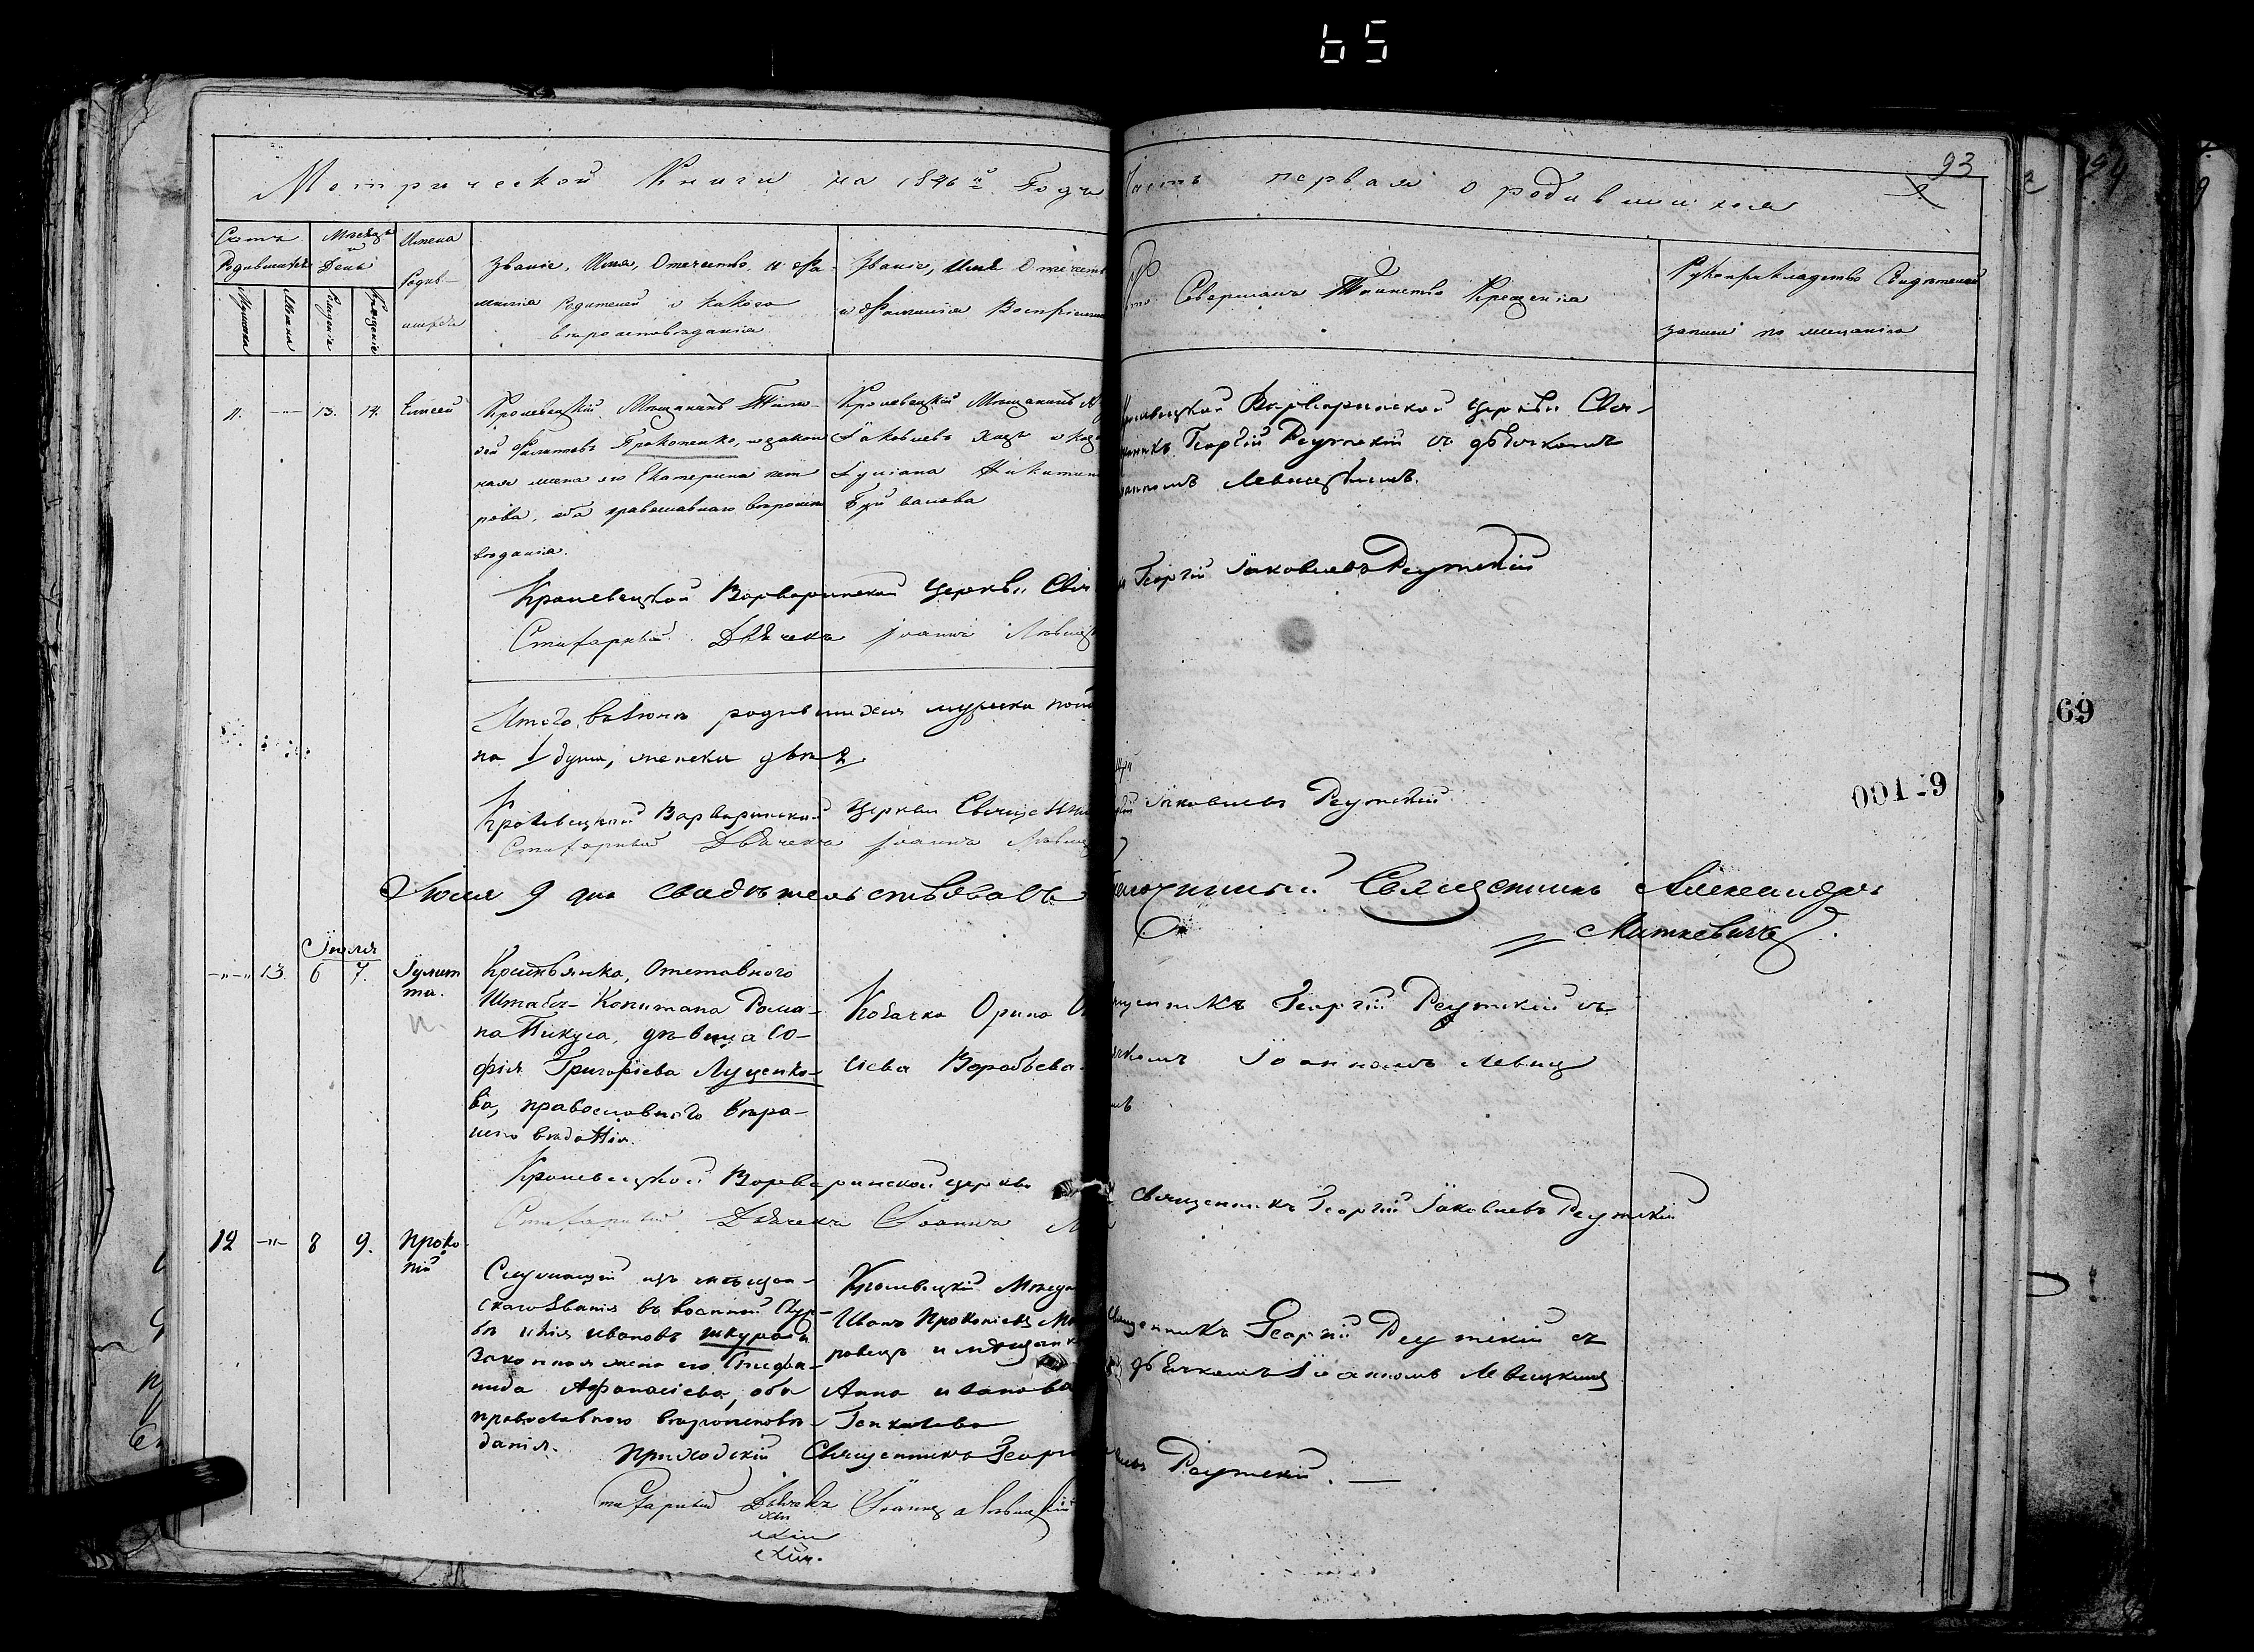 65
Метрической Книги на 1846й Годъ Часть первая о родившихся
93
Счетъ Родившихся
Мужеска
Женска
Месяцъ и День
Рожденія
Крещенія
Имена Родившихся
Званіе, Имя, Отечество, и Фамилія Родителей и какого вѣроисповѣданія
Званіе, Имя Отечество и Фамилія Воспріемни
Кто Совершалъ Таинство Крещенія
Рукоприкладство Свидетелей записи по желанію
11. 13. 14. Елисей
Кролевецкій Мещанинъ Тимо-
фей Филатовъ Прокопенко, и закон
ная жена его Екатерина Пет
рова, оба православнаго вѣроиспо
вѣданія.
Кролевецкій Мещанинъ
Іаковлевъ Кацъ и
Іуліана Никитина
Кролевецкой Варваринской Церкви Свя-
щенникъ Георгій Реутскій съ дьячкомъ
Іоанномъ Левицкимъ.
Кролевецкой Варваринской Церкви Свя
Георгій Іаковлевъ Реутскій
Стихарный Дьячекъ Іоаннъ Левицк
Итого въ Іюнѣ родившихся мужска пола
на 1 душа, женска двѣ 2.
Кролевецкой Варваринской Церкви Священни
Іаковлевъ Реутскій
Стихарный Дьячекъ Іоаннъ Левиц
Іюля 9 дня свидѣтельствовалъ Благочинный Священникъ Александръ
Миткевичъ
69
001-9
Іюля
13. 6 7. Іулит
та.
Крестьянка, Отставного
Штабъ-Капитана Рома-
на Пикуса, дѣвица Со-
фія Григоріева Луценко-
ва, православнаго вѣро-
исповѣданія.
Козачка Орина
сіева Воробьева
щенникъ Георгій Реутскій съ
ячкомъ Іоанномъ Левиц
Кролевецкой Варваринской церкви
Священникъ Георгій Іаковлевъ Реутскій
Стихарный Дьячекъ Іоаннъ
12 8 9. Проко
пій
Служащій изъ мещан-
скаго званія въ военной Служ-
бѣ Илія Ивановъ Шкурат и
Законная жена его Стефа-
нида Афанасіева, оба
православнаго вѣроисповѣ-
данія.
Кролевецкій Мещан
Иванъ Прокопіевъ
и мещанк
Анна Иванова
Священникъ Георгій Реутскій съ
дьячкомъ Іоанномъ Левицким
Приходскій Священникъ Георгі
Реутскій.
Стихарный Дьячекъ Іоаннъ Левицкій